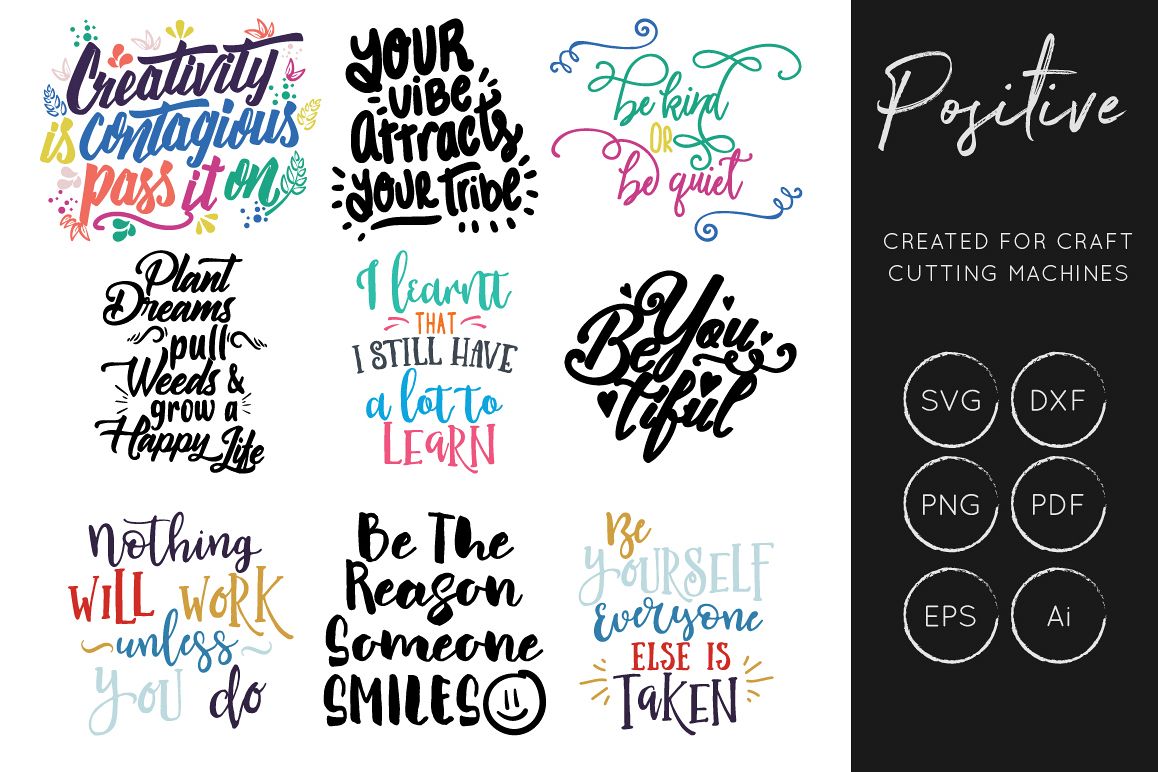 Creativity
is contagious
pass it on
YOUR
vibe
Attracts
your Tribe
be kind
OR
be quiet
Plant
Dreams
pull
Weeds &
grow a
Happy Life
I learnt
THAT
I STILL HAVE
a lot to
LEARN
Be You
tiful
Nothing
WILL WORK
unless
YOU do
Be The
Reason
Someone
SMILES
Be
YOURSELF
Everyone
ELSE IS
TAKEN
Positive
CREATED FOR CRAFT
CUTTING MACHINES
SVG DXF
PNG PDF
EPS Ai